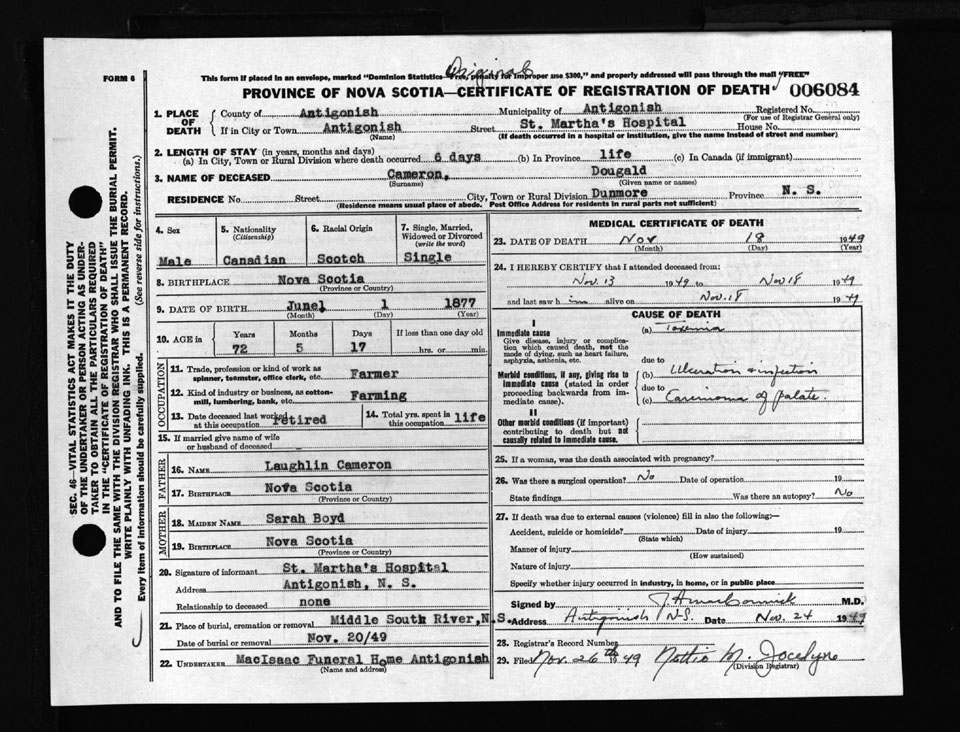 Original
FORM 6
This form if placed in an envelope, marked "Dominion Statistics—Free, penalty for improper use $300," and properly addressed will pass through the mail "FREE"
PROVINCE OF NOVA SCOTIA—CERTIFICATE OF REGISTRATION OF DEATH 006084
1. PLACE OF DEATH County of Antigonish Municipality of Antigonish Registered No.
(For use of Registrar General only)
If in City or Town Antigonish Street St. Martha's Hospital House No.
(Name) (If death occurred in a hospital or institution, give the name instead of street and number)
2. LENGTH OF STAY (in years, months and days)
(a) In City, Town or Rural Division where death occurred 6 days (b) In Province life (c) In Canada (if immigrant)
3. NAME OF DECEASED Cameron, Dougald
(Surname) (Given name or names)
RESIDENCE No. Street City, Town or Rural Division Dunmore Province N. S.
(Residence means usual place of abode. Post Office Address for residents in rural parts not sufficient)
4. Sex 5. Nationality (Citizenship) 6. Racial Origin 7. Single, Married, Widowed or Divorced (write the word)
Male Canadian Scotch Single
8. BIRTHPLACE Nova Scotia
(Province or Country)
9. DATE OF BIRTH June, 1 1877
(Month) (Day) (Year)
10. AGE in Years Months Days If less than one day old
72 5 17 hrs. or min.
OCCUPATION
11. Trade, profession or kind of work as spinner, teamster, office clerk, etc. Farmer
12. Kind of industry or business, as cotton-mill, lumbering, bank, etc. Farming
13. Date deceased last worked at this occupation retired 14. Total yrs. spent in this occupation life
15. If married give name of wife or husband of deceased
FATHER
16. NAME Laughlin Cameron
17. BIRTHPLACE Nova Scotia
(Province or Country)
MOTHER
18. MAIDEN NAME Sarah Boyd
19. BIRTHPLACE Nova Scotia
(Province or Country)
20. Signature of informant St. Martha's Hospital
Address Antigonish, N. S.
Relationship to deceased none
21. Place of burial, cremation or removal Middle South River, N.S.
Date of burial or removal Nov. 20/49
22. UNDERTAKER MacIsaac Funeral Home Antigonish
(Name and address)
MEDICAL CERTIFICATE OF DEATH
23. DATE OF DEATH Nov 18 1949
(Month) (Day) (Year)
24. I HEREBY CERTIFY that I attended deceased from:
Nov. 13 1949 to Nov 18 1949
and last saw him alive on Nov. 18 1949
CAUSE OF DEATH
I
Immediate cause (a) Toxemia
Give disease, injury or complication which caused death, not the mode of dying, such as heart failure, asphyxia, asthenia, etc.
due to
Morbid conditions, if any, giving rise to immediate cause (stated in order proceeding backwards from immediate cause).
(b) Ulceration & infection
due to
(c) Carcinoma of palate.
II
Other morbid conditions (if important) contributing to death but not causally related to immediate cause.
25. If a woman, was the death associated with pregnancy?
26. Was there a surgical operation? No Date of operation 19
State findings Was there an autopsy? No
27. If death was due to external causes (violence) fill in also the following:—
Accident, suicide or homicide? Date of injury 19
(State which)
Manner of injury
(How sustained)
Nature of injury
Specify whether injury occurred in industry, in home, or in public place
Signed by M.D.
Address Antigonish N.S. Date Nov. 24 1949
28. Registrar's Record Number
29. Filed Nov. 26th 1949 M. Jocelyne
(Division Registrar)
SEC. 46—VITAL STATISTICS ACT MAKES IT THE DUTY
OF THE UNDERTAKER OR PERSON ACTING AS UNDER-
TAKER TO OBTAIN ALL THE PARTICULARS REQUIRED
IN THE "CERTIFICATE OF REGISTRATION OF DEATH"
AND TO FILE THE SAME WITH THE DIVISION REGISTRAR WHO SHALL ISSUE THE BURIAL PERMIT.
WRITE PLAINLY WITH UNFADING INK. THIS IS A PERMANENT RECORD.
Every item of information should be carefully supplied. (See reverse side for instructions.)